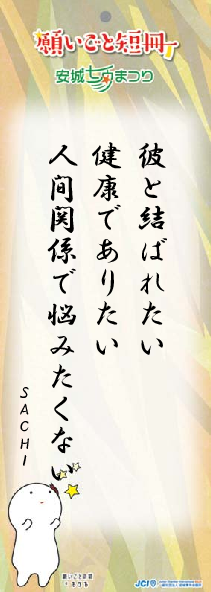 願いごと短冊
安城七夕まつり
彼と結ばれたい
健康でありたい
人間関係で悩みたくない
SACHI
願いごと短冊
JCI